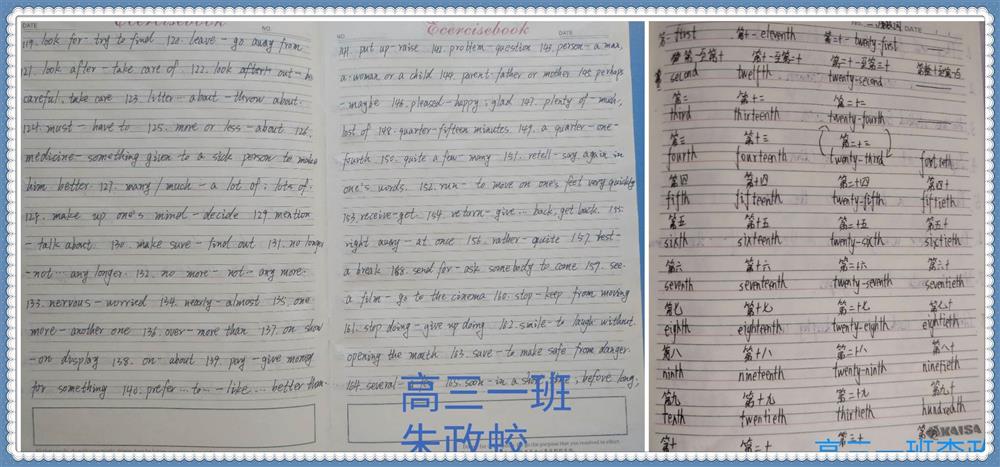 Exercisebook
DATE NO
119. look for - try to find 120. leave - go away from
121. look after - take care of. 122. look out - be
careful, take care 123. litter - about - throw about.
124. must - have to 125. more or less - about 126.
medicine - something given to a sick person to make
him better. 127. many / much - a lot of; lots of.
128. make up one's mined - decide 129 mention
- talk about. 130. make sure - find out 131. no longer
- not ... any longer. 132. no more - not - any more.
133. nervous - worried 134. nearly - almost 135. one
more - another one 136. over - more than 137. on show
- on display 138. on - about 139. pay - give money
for something 140. prefer ... to ... - like ... better than.
Exercisebook
NO DATE
141. put up - raise 142. problem - question 143. person - a man,
a woman or a child 144. parent - father or mother 145. perhaps
- maybe 146. pleased - happy; glad 147. plenty of - much,
lost of 148. quarter - fifteen minutes 149. a quarter - one-
fourth 150. quite a few - many 151. retell - say again in
one's words. 152. run - to move on one's feet very quickly
153. receive - get. 154. return - give ... back, get back. 155.
right away - at once 156. rather - quite 157. rest -
a break 158. send for - ask somebody to come 159. see
a film - go to the cinema 160. stop - keep from moving
161. stop doing - give up doing 162. smile - to laugh without
opening the mouth 163. save - to make safe from danger.
164. several - 165. soon - in a short time, before long;
高三一班
朱政蛟
NO. DATE
第一 first 第十一 eleventh 第二十一 twenty-first
第二 第十二
second twelfth twenty-second
第三 第十三 第二十二
third thirteenth twenty-fourth
第三 第十三 第二十三
fourth fourteenth twenty-third fortieth
第四 第十四 第二十四 第四十
fifth fifteenth twenty-fifth fiftieth
第五 第十五 第二十五 第五十
sixth sixteenth twenty-sixth sixtieth
第六 第十六 第二十六 第六十
seventh seventeenth twenty-seventh seventieth
第七 第十七 第二十七 第七十
eighth eighteenth twenty-eighth eightieth
第八 第十八 第二十八 第八十
ninth nineteenth twenty-ninth ninetieth
第九 第十九 第二十九 第九十
tenth twentieth thirtieth hundredth
第十 第二十 第三十
KAISA
高三一班李政